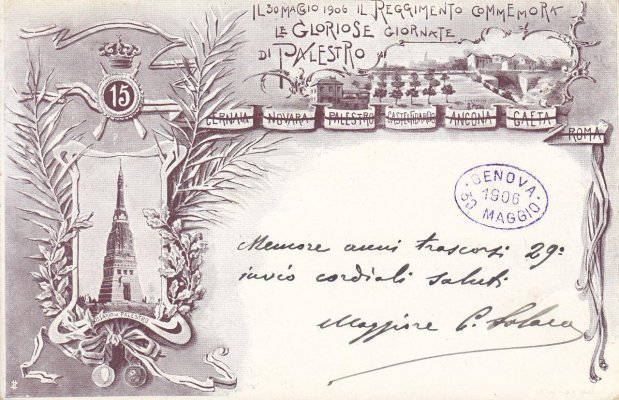 IL 30 MAGGIO 1906 IL REGGIMENTO COMMEMORA
LE GLORIOSE GIORNATE
DI PALESTRO
15
CERNAIA NOVARA PALESTRO CASTELFIDARDO ANCONA GAETA ROMA
GENOVA
1906
30 MAGGIO
Memore anni trascorsi 29º
invio cordiali saluti
Maggiore
PALESTRO